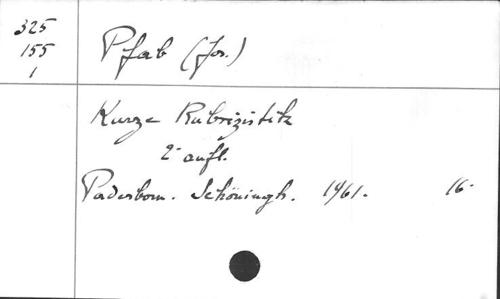 325
155
1
Pfab (Jos.)
Kurze Rubrizistik
2 aufl.
Paderborn. Schöningh. 1961. 16.